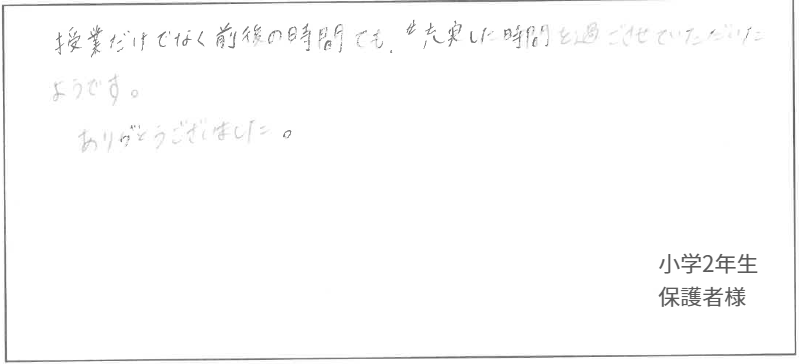 授業だけでなく前後の時間でも、充実した時間を過ごせていただいた
ようです。
ありがとうございました。
小学2年生
保護者様